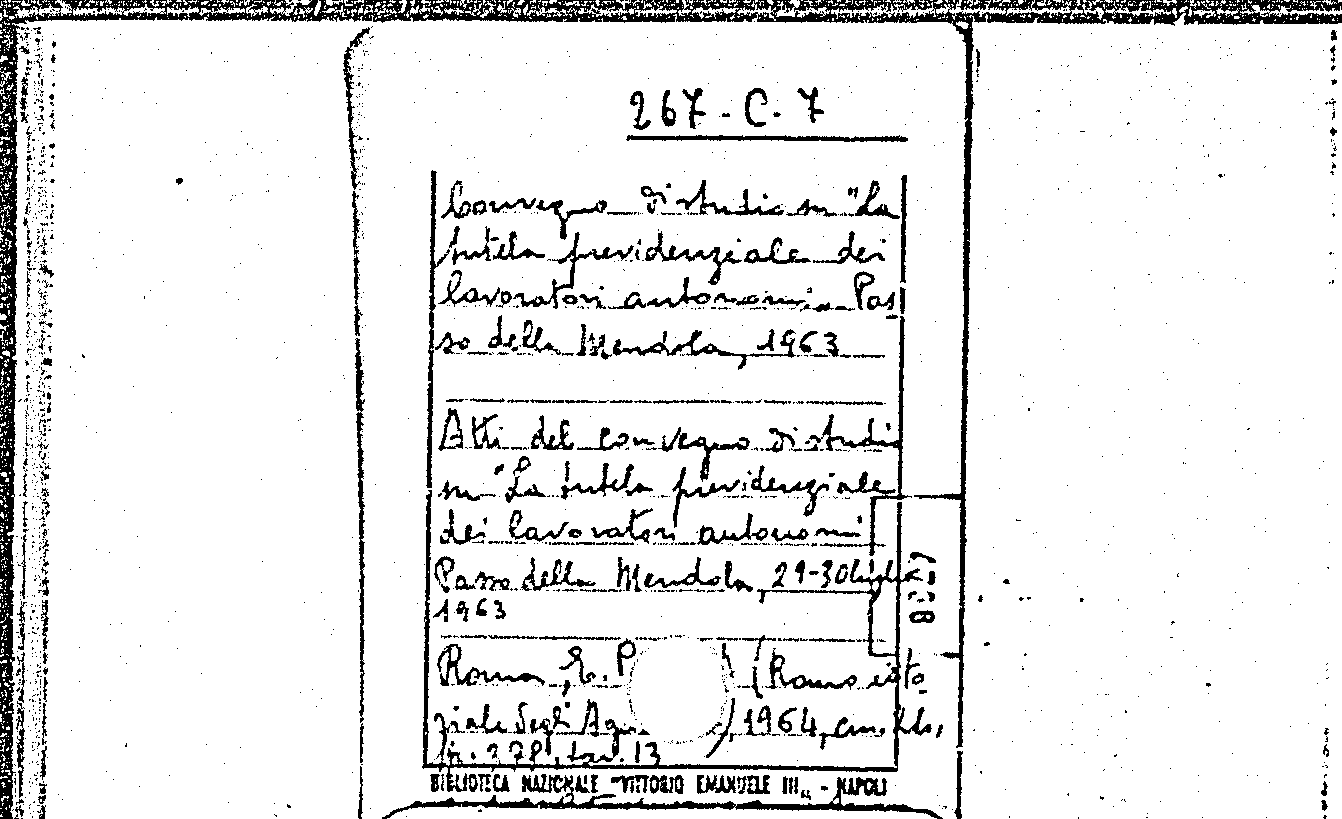 267-C.7
Convegno di studio su "La
tutela previdenziale dei
lavoratori autonomi„ Pas
so della Mendola, 1963
Atti del convegno di studio
su "La tutela previdenziale
dei lavoratori autonomi
Passo della Mendola, 29-30 luglio
1963
Roma, E. P ) (Roma
ziale degli , 1964, cm.
p. 378, tav. 13
BIBLIOTECA NAZIONALE "VITTORIO EMANUELE III„ - NAPOLI